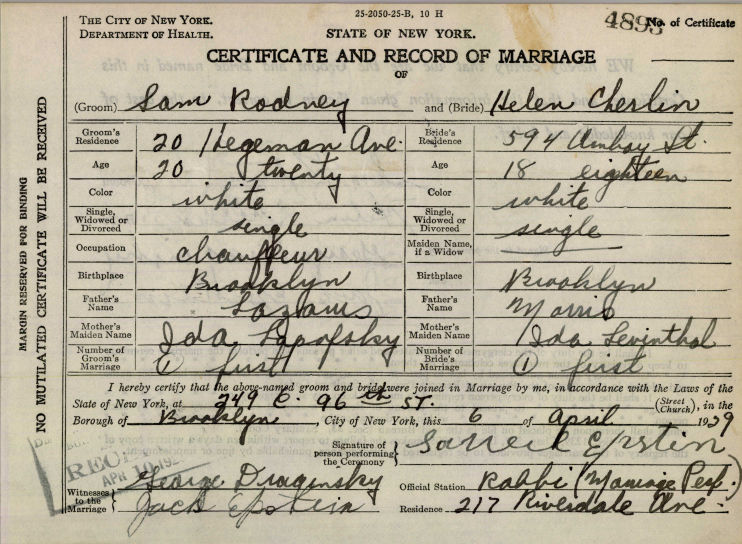 25-2050-25-B, 10 H
4893 No. of Certificate
THE CITY OF NEW YORK.
DEPARTMENT OF HEALTH.
STATE OF NEW YORK.
CERTIFICATE AND RECORD OF MARRIAGE
OF
(Groom) Sam Rodney and (Bride) Helen Cherlin
Groom's Residence 20 Hegeman Ave. Bride's Residence 594 Amboy St.
Age 20 twenty Age 18 eighteen
Color white Color white
Single, Widowed or Divorced single Single, Widowed or Divorced single
Occupation chauffeur Maiden Name, if a Widow
Birthplace Brooklyn Birthplace Brooklyn
Father's Name Lazarus Father's Name Morris
Mother's Maiden Name Ida Lapofsky Mother's Maiden Name Ida Levinthal
Number of Groom's Marriage 1 first Number of Bride's Marriage 1 first
I hereby certify that the above-named groom and bride were joined in Marriage by me, in accordance with the Laws of the
State of New York, at 249 E. 96th ST. (Street Church), in the
Borough of Brooklyn, City of New York, this 6 of April 1929
Signature of person performing the Ceremony Epstin
REC APR 10 192
Witnesses to the Marriage George Draginsky
Jack Epstein
Official Station Rabbi (Marriage Perf.)
Residence 217 Riverdale Ave.
MARGIN RESERVED FOR BINDING
NO MUTILATED CERTIFICATE WILL BE RECEIVED